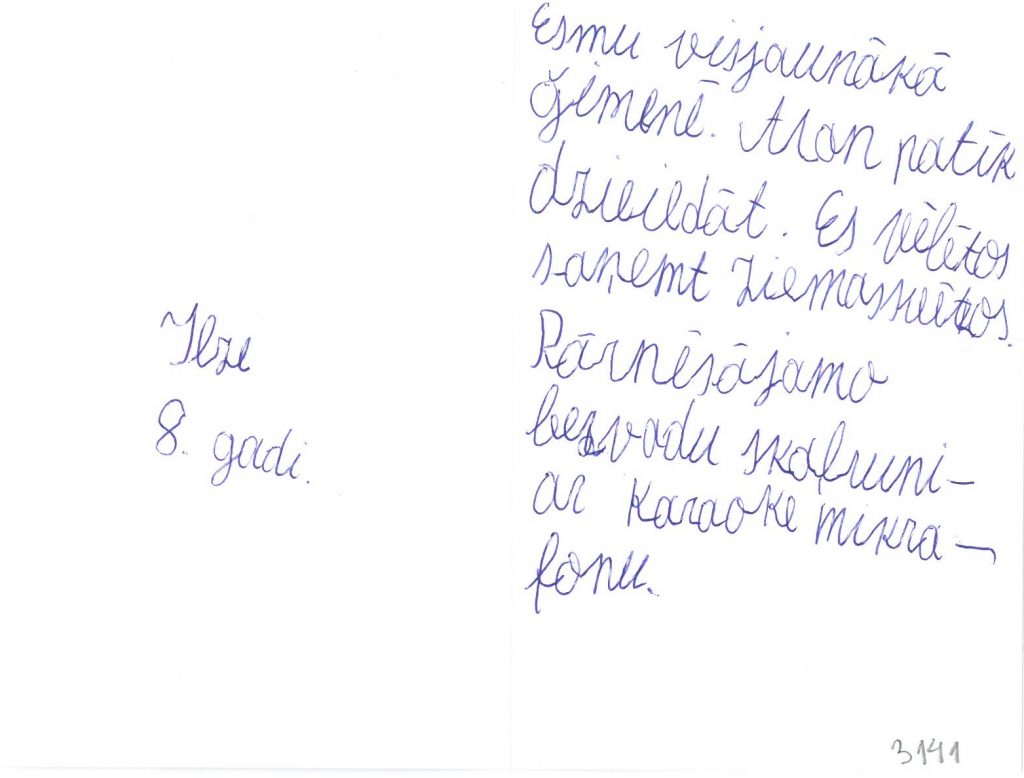 Ilze
8. gadi.
Esmu visjaunākā
ģimenē. Man patīk
dzieiedāt. Es vēlētos
saņemt Ziemassvētkos.
Pārnēsājamo
bezvadu skaļruni-
ar karaoke mikra-
fonu.
3141